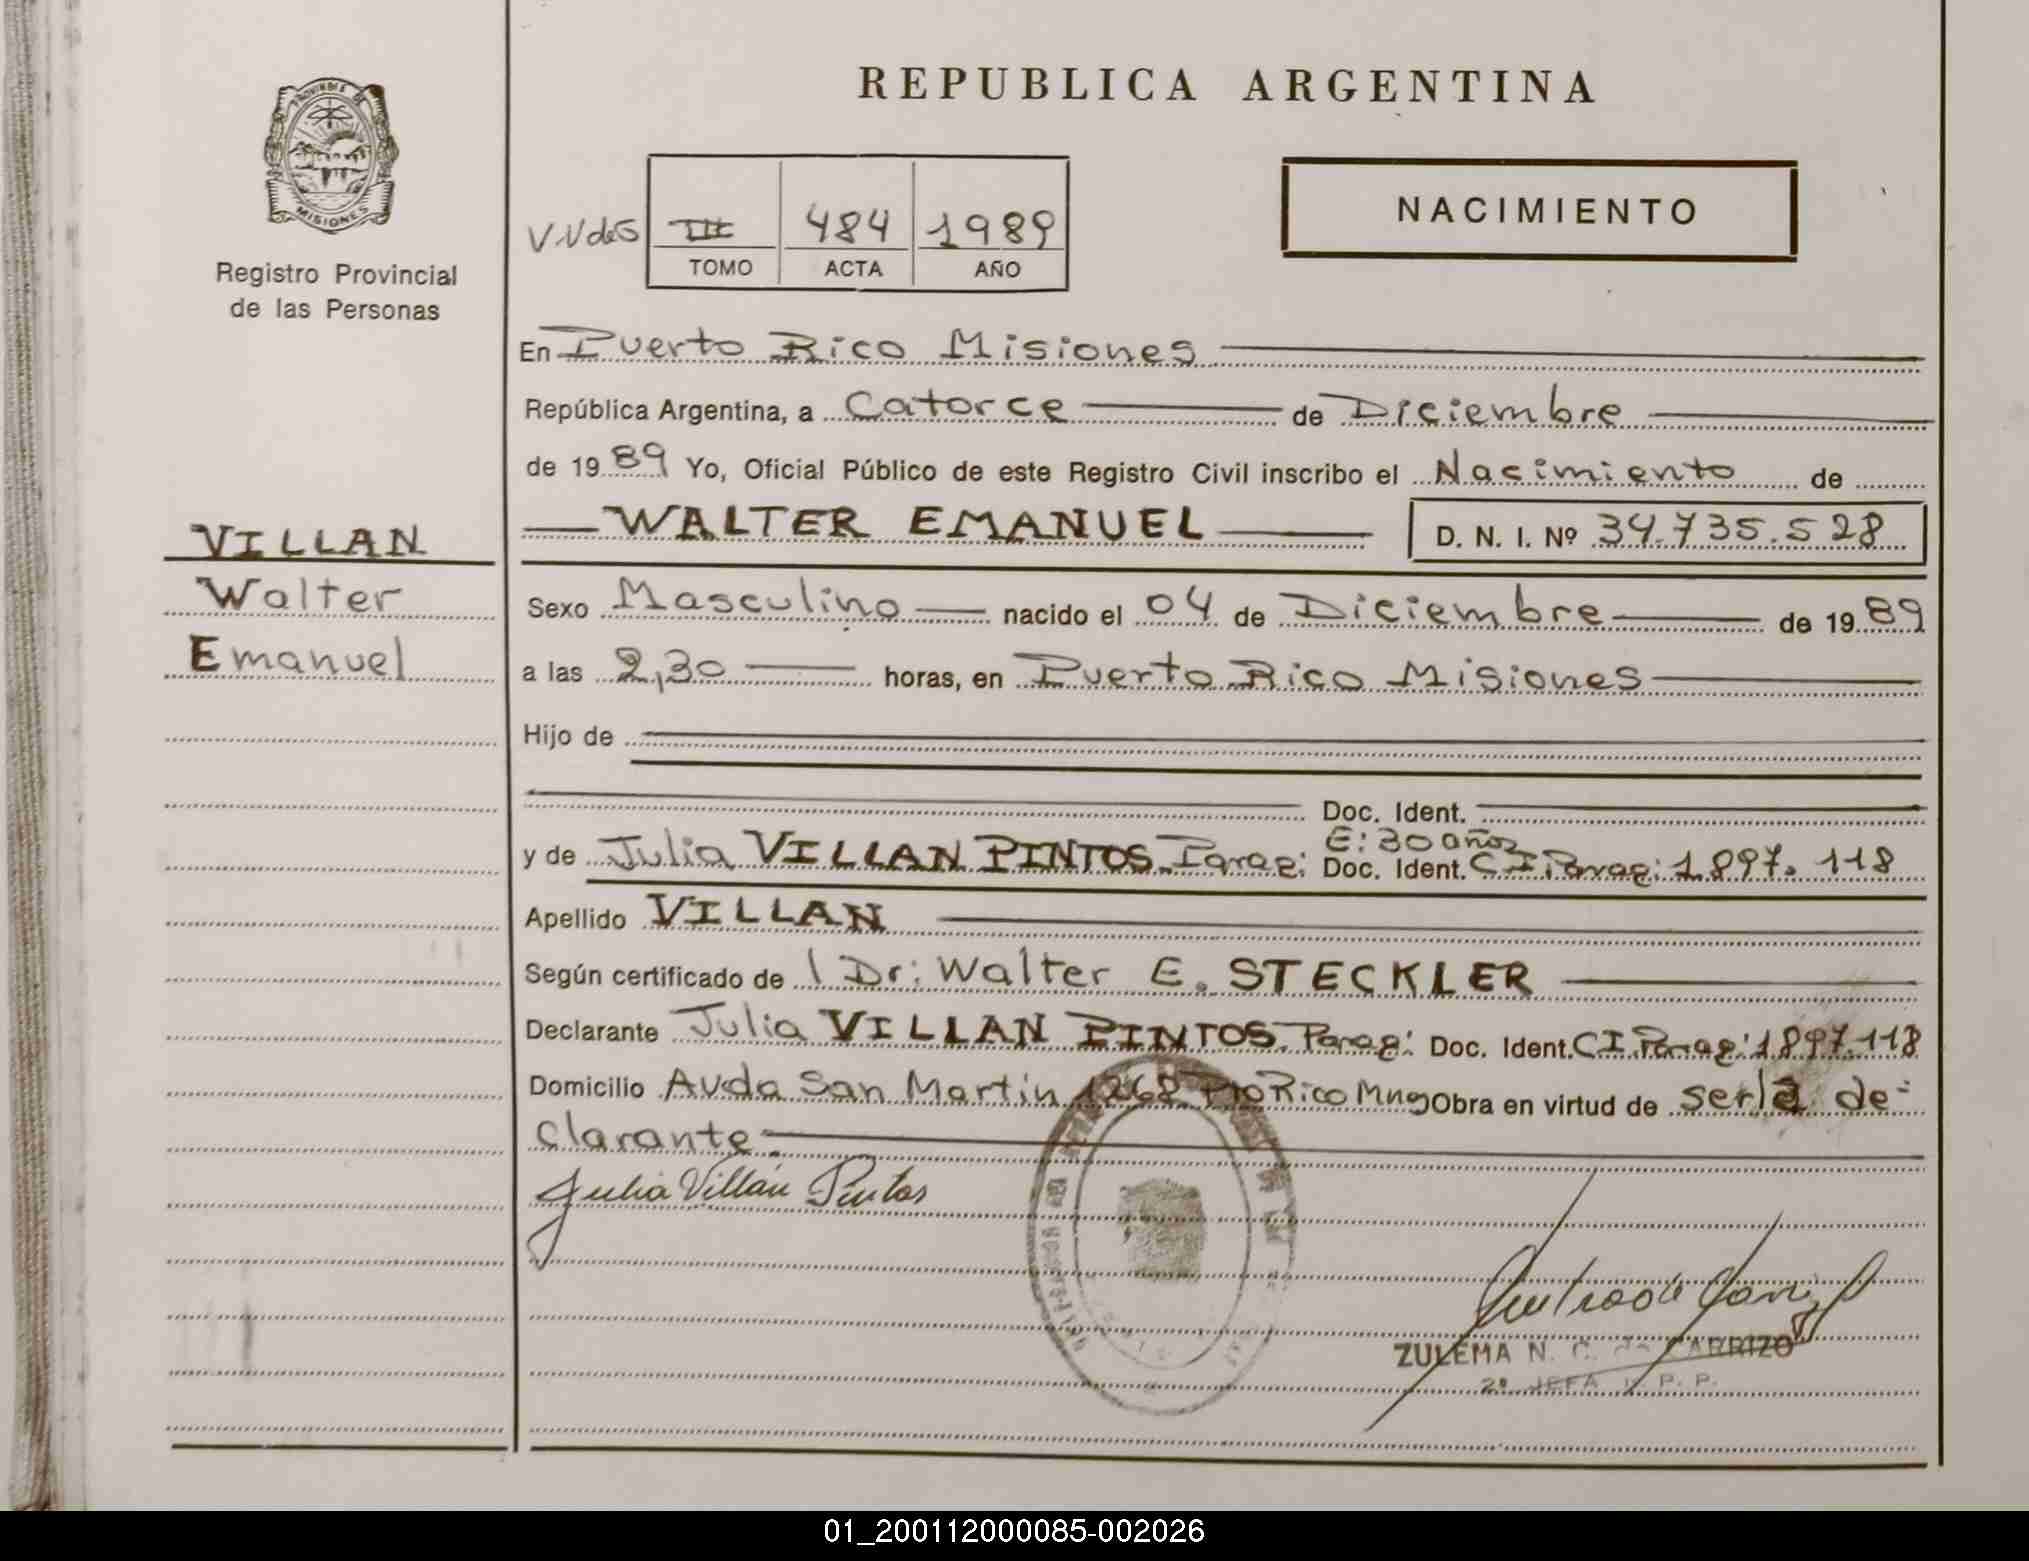 REPUBLICA ARGENTINA
PROVINCIA DE
MISIONES
Registro Provincial
de las Personas
III 484 1989
TOMO ACTA AÑO
NACIMIENTO
En Puerto Rico Misiones
República Argentina, a Catorce de Diciembre
de 1989 Yo, Oficial Público de este Registro Civil inscribo el Nacimiento de
VILLAN
Walter
Emanuel
WALTER EMANUEL D. N. I. Nº 34.735.528
Sexo Masculino nacido el 04 de Diciembre de 1989
a las 2,30 horas, en Puerto Rico Misiones
Hijo de
Doc. Ident.
E: 30 años
y de Julia VILLAN PINTOS. Parag: Doc. Ident. CI Parag: 1.897.118
Apellido VILLAN
Según certificado de l Dr: Walter E. STECKLER
Declarante Julia VILLAN PINTOS. Parag: Doc. Ident. CI Parag: 1.897.118
Domicilio Avda San Martin 1268 Pto Rico Mnes Obra en virtud de ser la de-
clarante.
Julia Villán Pintos
ZULEMA N. C. de CARRIZO
2º JEFA R. P. P.
01_200112000085-002026